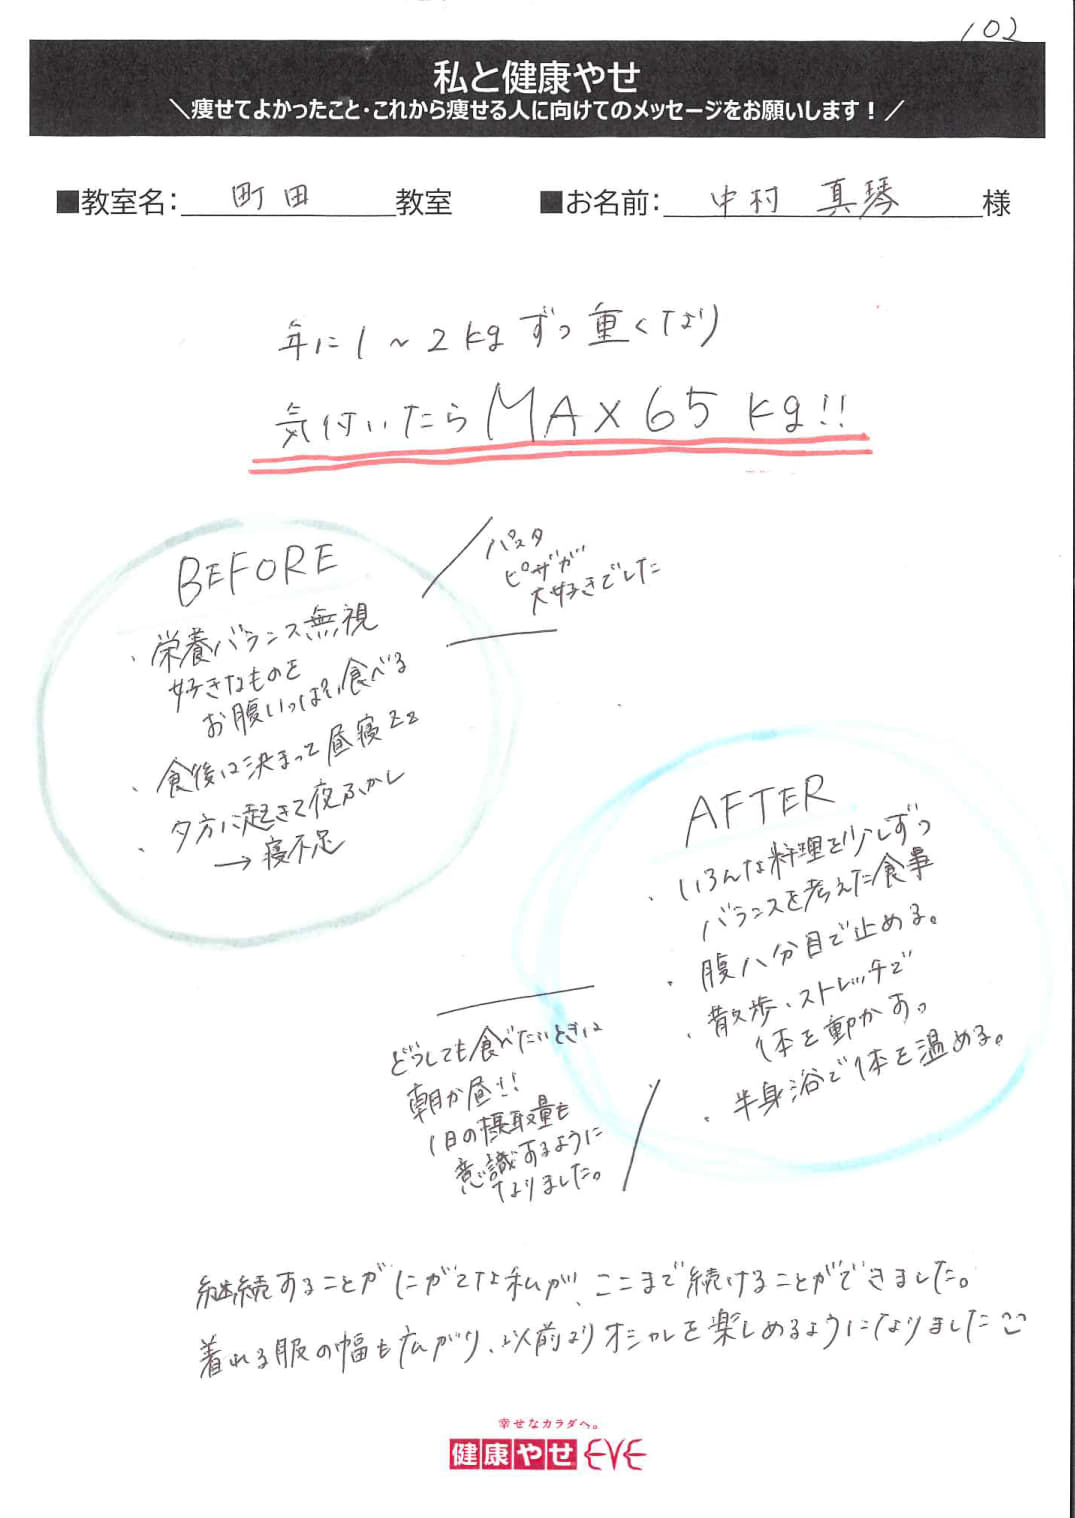 102
私と健康やせ
＼痩せてよかったこと・これから痩せる人に向けてのメッセージをお願いします！／
■教室名: 町田 教室
■お名前: 中村 真琴 様
年に1～2kgずつ重くなり
気付いたらMAX65kg!!
BEFORE
・栄養バランス無視
好きなものを
お腹いっぱい食べる
・食後は決まって昼寝zz
・夕方に起きて夜ふかし
→寝不足
パスタ
ピザが
大好きでした
AFTER
・いろんな料理を少しずつ
バランスを考えた食事
・腹八分目で止める。
・散歩、ストレッチで
体を動かす。
・半身浴で体を温める。
どうしても食べたいときは
朝か昼!!
1日の摂取量も
意識するように
なりました。
継続することがにがてな私が、ここまで続けることができました。
着れる服の幅も広がり、以前よりオシャレを楽しめるようになりました
幸せなカラダへ。
健康やせEVE